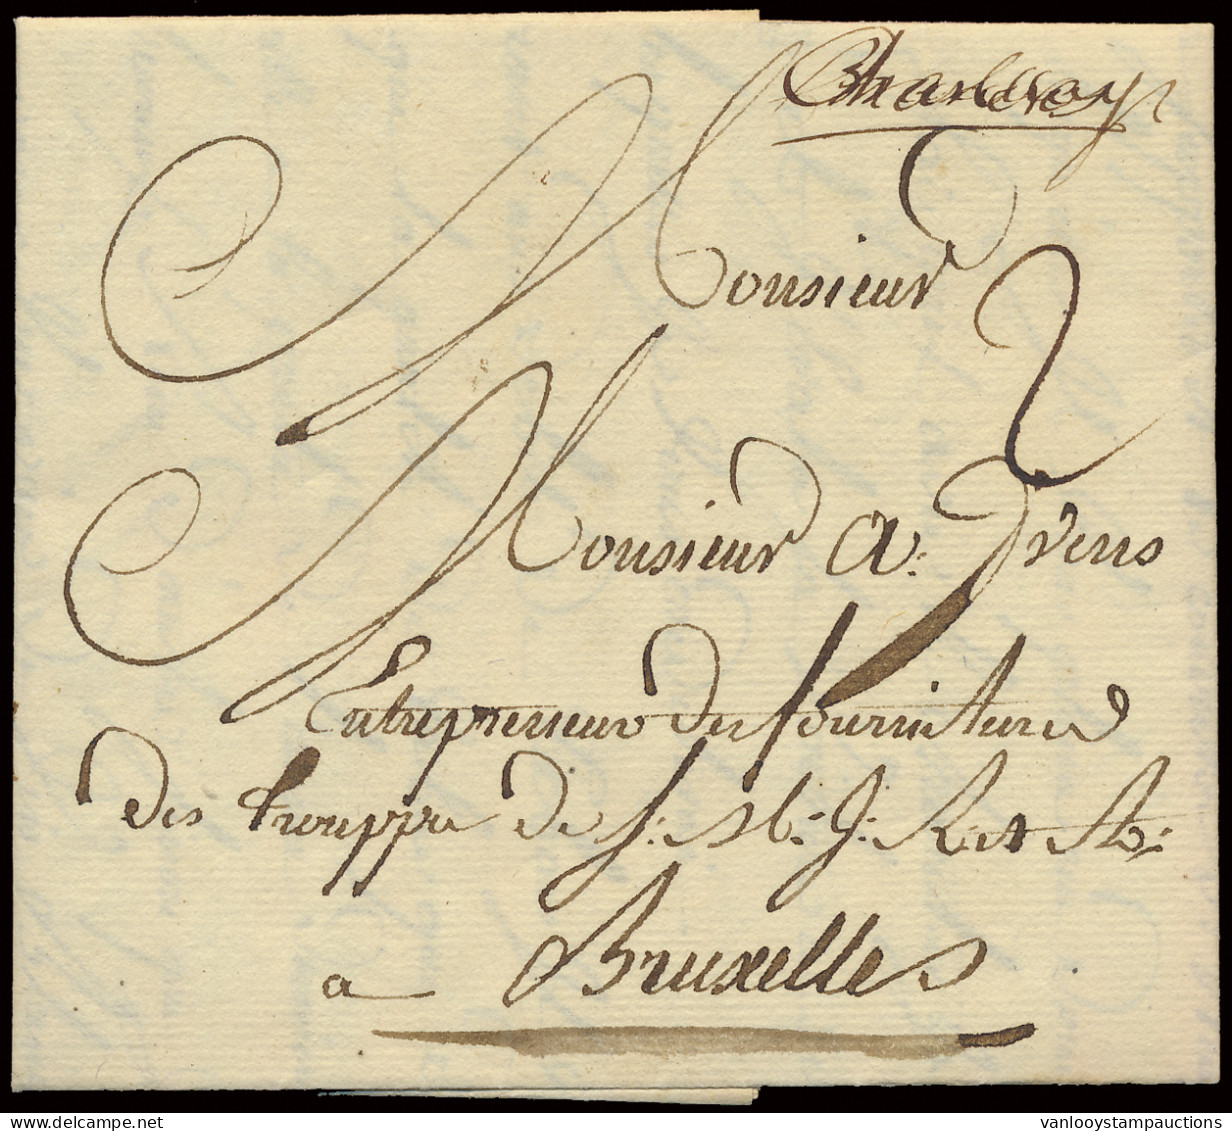 Charleroy
Monsieur
2
Monsieur A: Drens
Entrepreneur des fournitures
des trouppe de S: M: J: R et A:
a Bruxelles
vanlooystampauctions